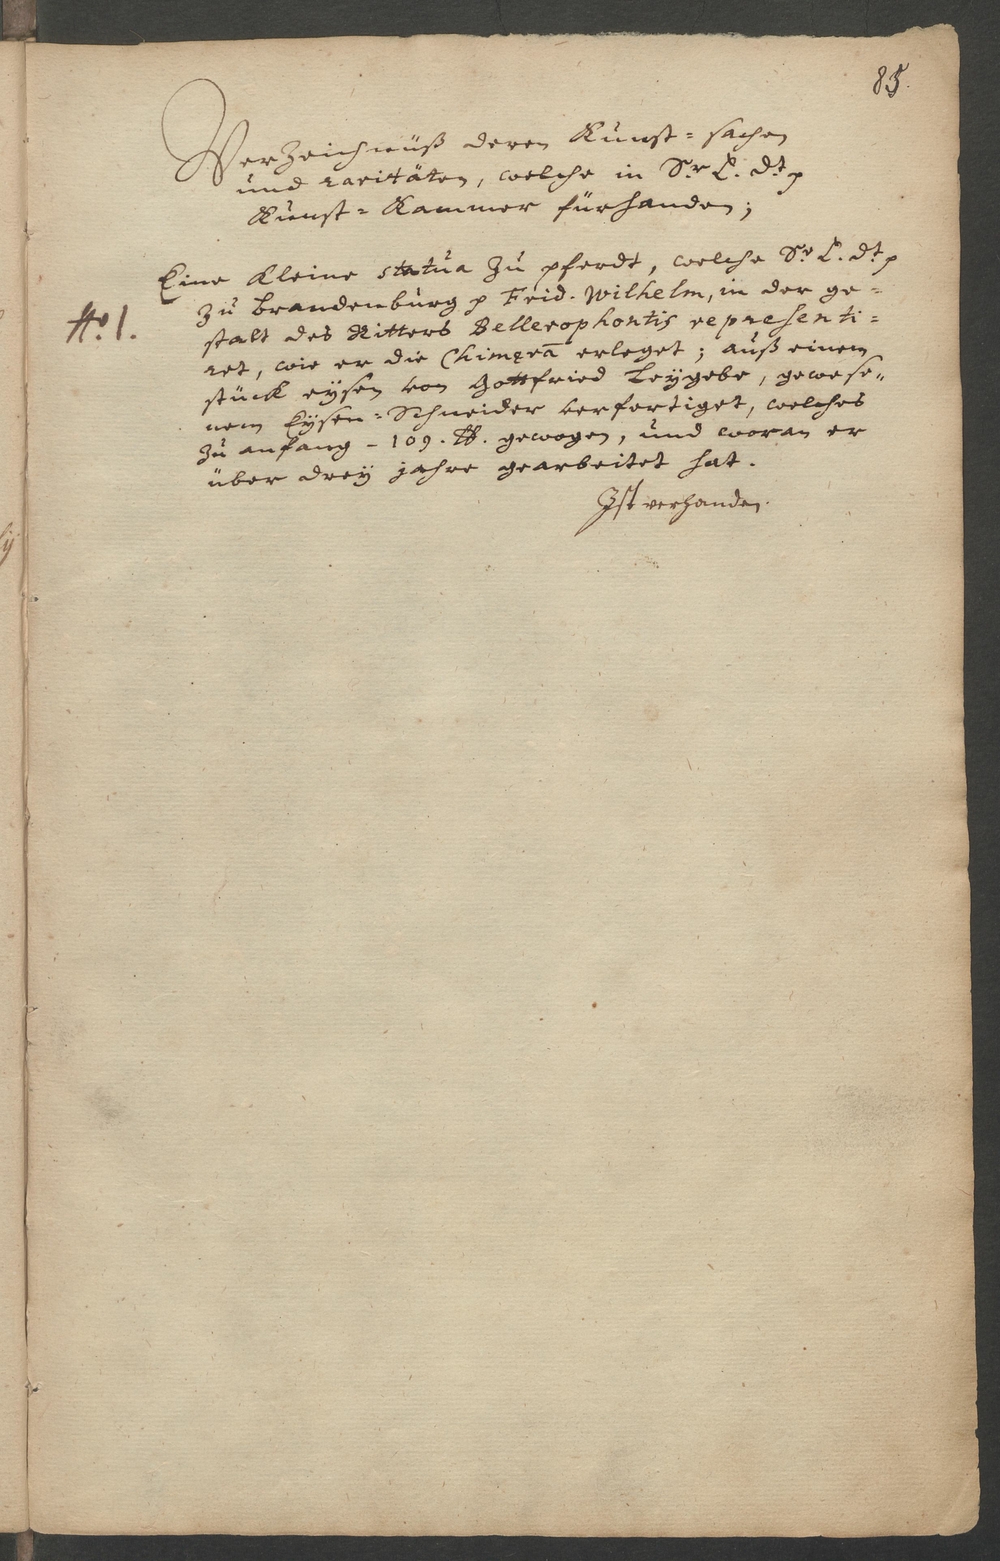 85.
Verzeichnüß deren Kunst=sachen
und raritäten, welche in Sr. C. Dt. p
Kunst=Kammer fürhanden;
Eine Kleine statua zu pferdt, welche Sr. C. Dt. p
No. 1.
zu Brandenburg p Frid. Wilhelm, in der ge=
stalt des Ritters Bellerophontis repraesenti=
ret, wie er die Chimaerā erleget; auß einem
stück eysen von Gottfried Leygebe, gewese=
nem Eysen=Schneider verfertiget, welches
zu anfang - 109. ℔. gewogen, und woran er
über dreÿ jahre gearbeitet hat.
Ist verhanden.